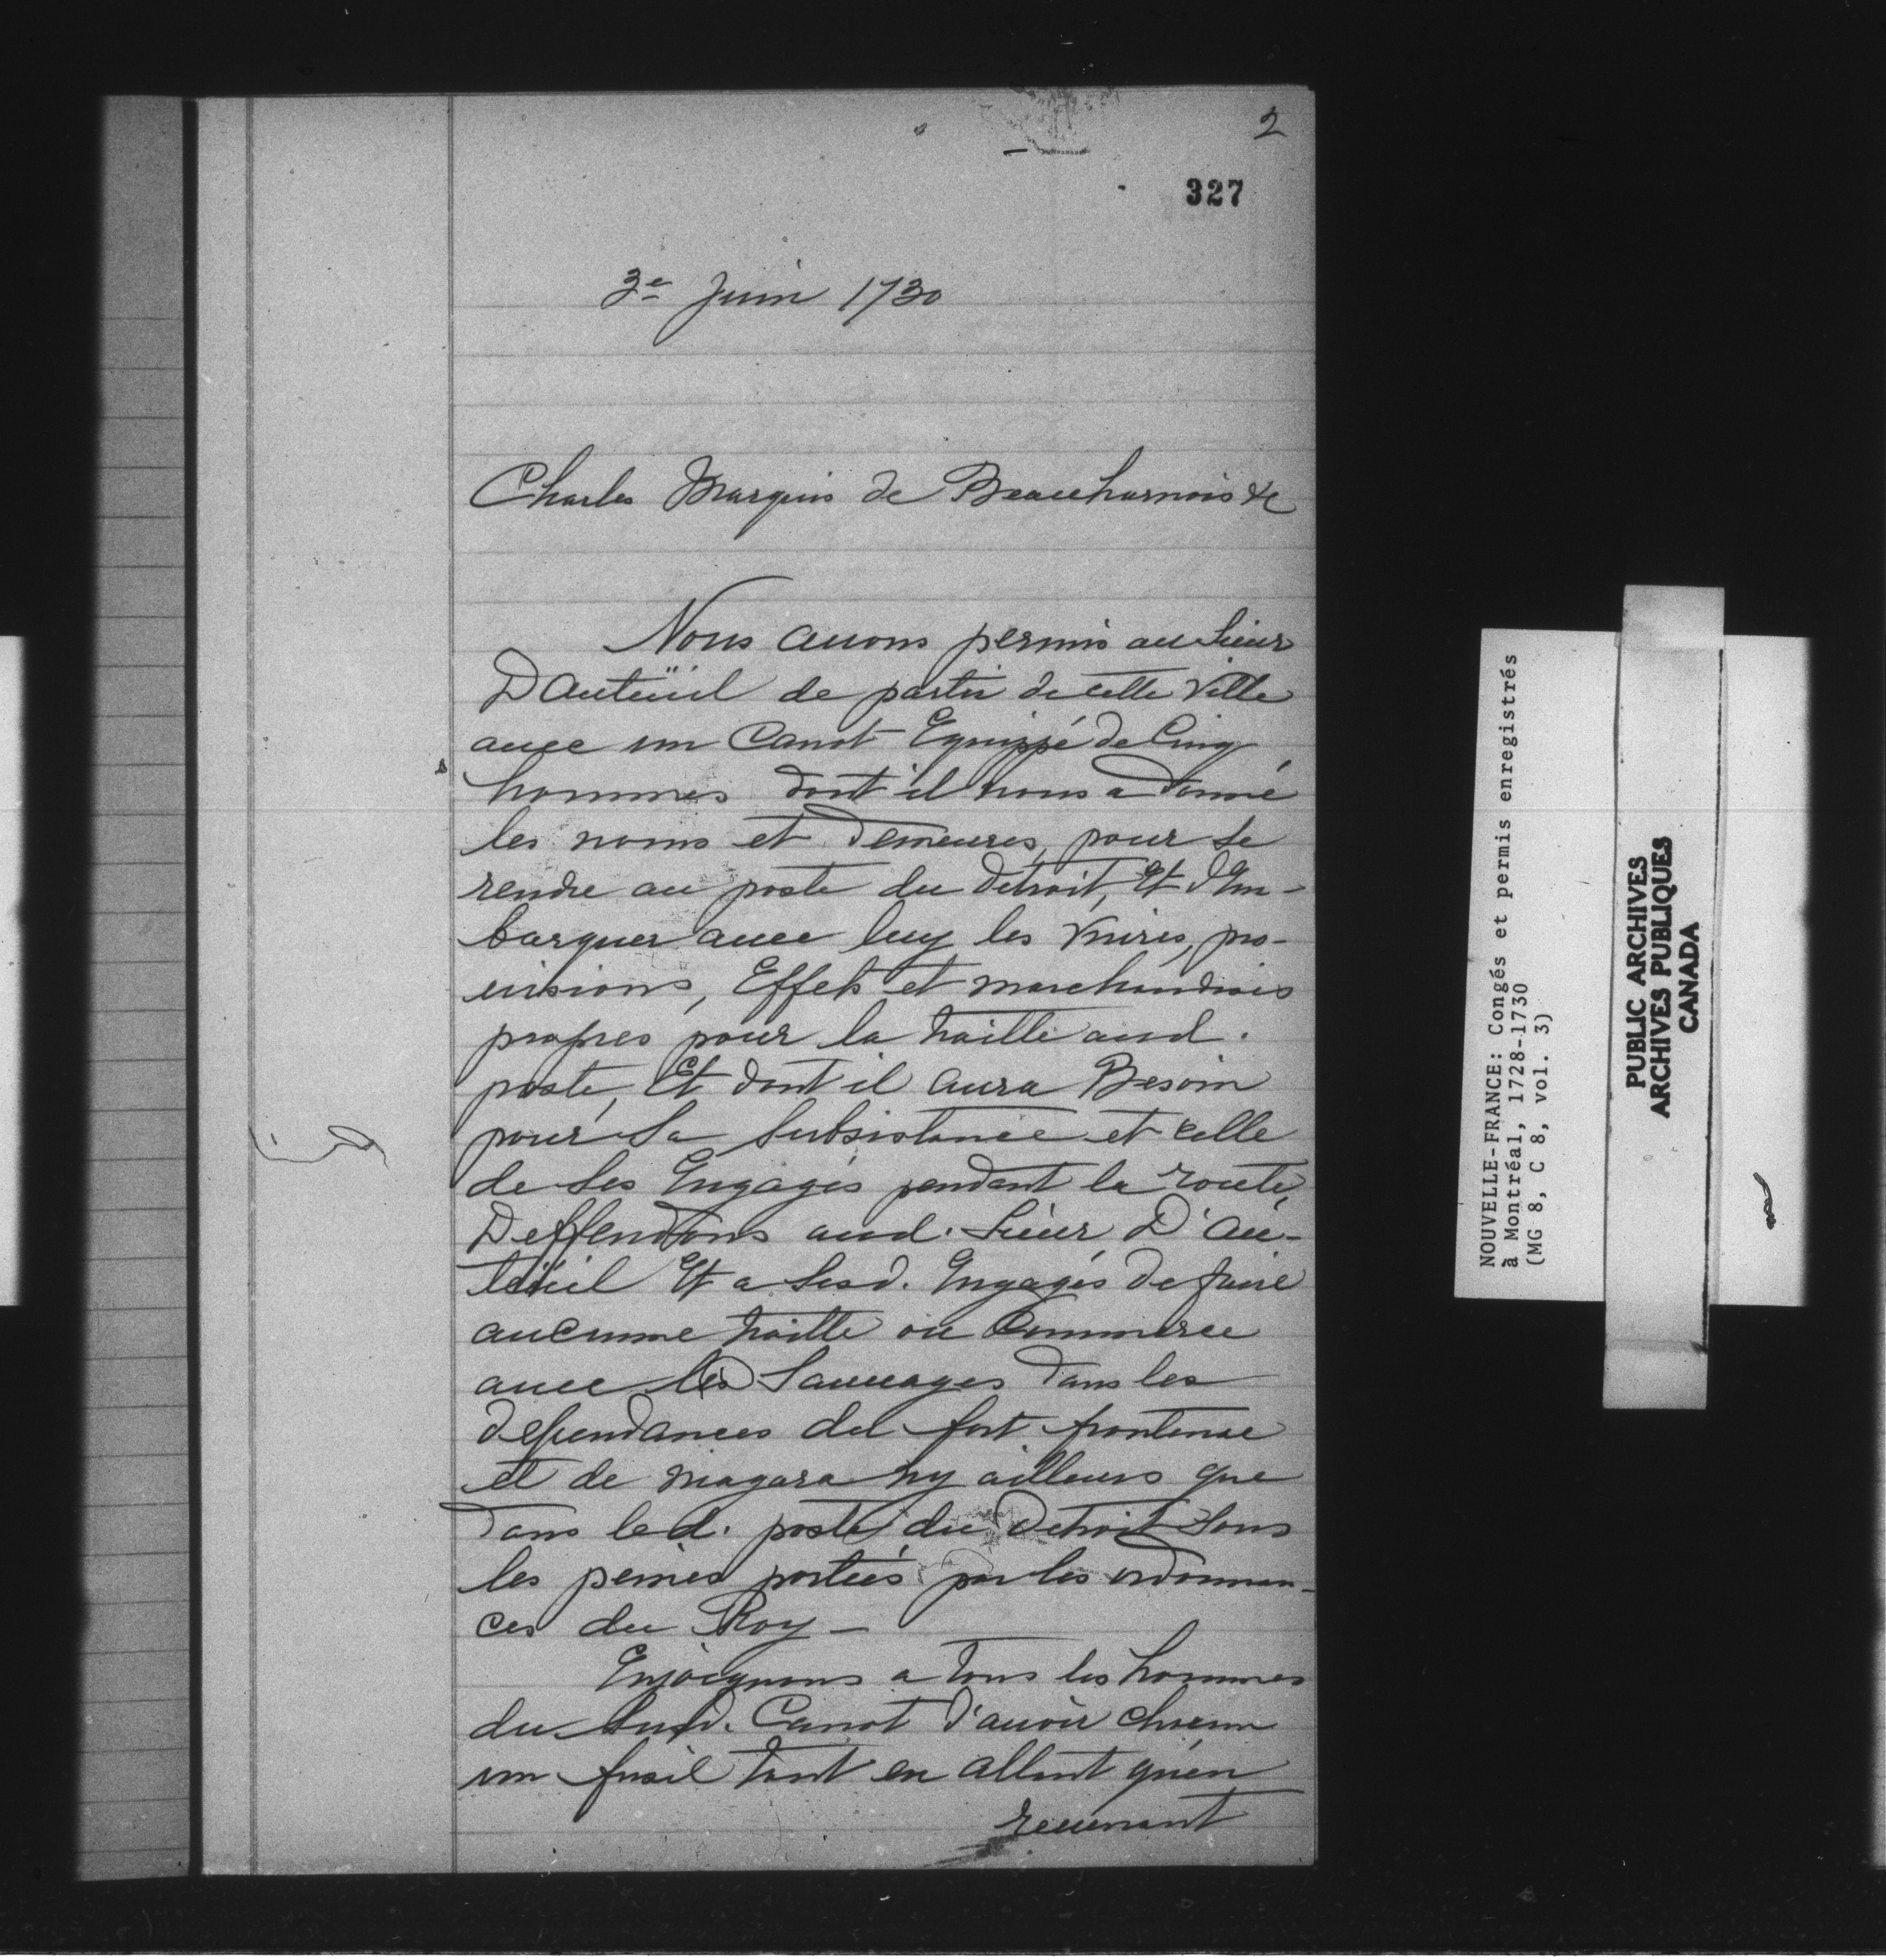 2
327
3e Juin 1730
Charles Marquis de Beauharnois &c
Nous auons permis au Sieur
Dauteüil de partir de cette Ville
auec un Canot Equippé de Cinq
hommes dont il nous a donné
les noms et demeures, pour se
rendre au poste du détroit, Et d'Em-
barquer auec luy les Viures, pro-
uisions, Effets et marchandises
propres pour la traitte aud.
poste, Et dont il aura Besoin
pour Sa Subsistance et celle
de Ses Engagés pendant la route,
Deffendons aud. Sieur D'au-
teüil Et a Sesd. Engagés de faire
aucunne traitte ou Commerce
auec les Sauuages dans les
dependances du fort frontenac
et de niagara ny ailleurs que
dans led. poste du Detroit Sous
les peines portées par les ordonnan-
ces du Roy —
Enjoignons a tous les hommes
du Susd. Canot d'auoir chacun
un fusil tant en allant qu'en
reuenant
NOUVELLE-FRANCE: Congés et permis enregistrés
à Montréal, 1728-1730
(MG 8, C 8, vol. 3)
PUBLIC ARCHIVES
ARCHIVES PUBLIQUES
CANADA